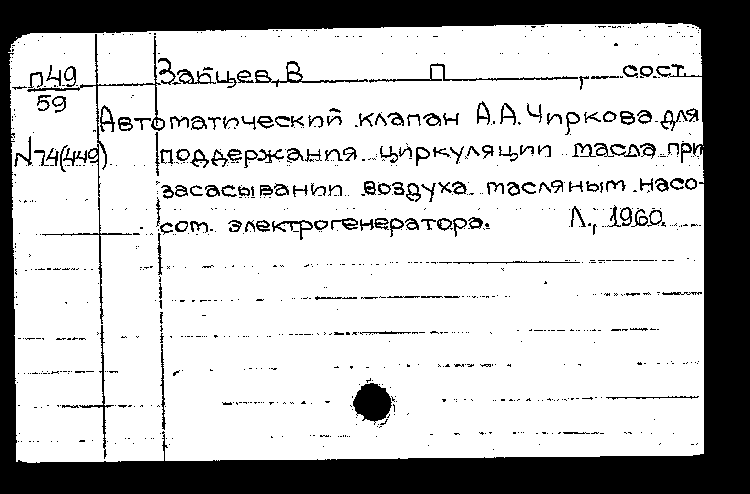 П49
59
N74(449)
Зайцев, В П , сост.
Автоматический клапан А.А.Чиркова для
поддержания циркуляции масла при
засасывании воздуха масляным насо-
сом электрогенератора. Л., 1960.